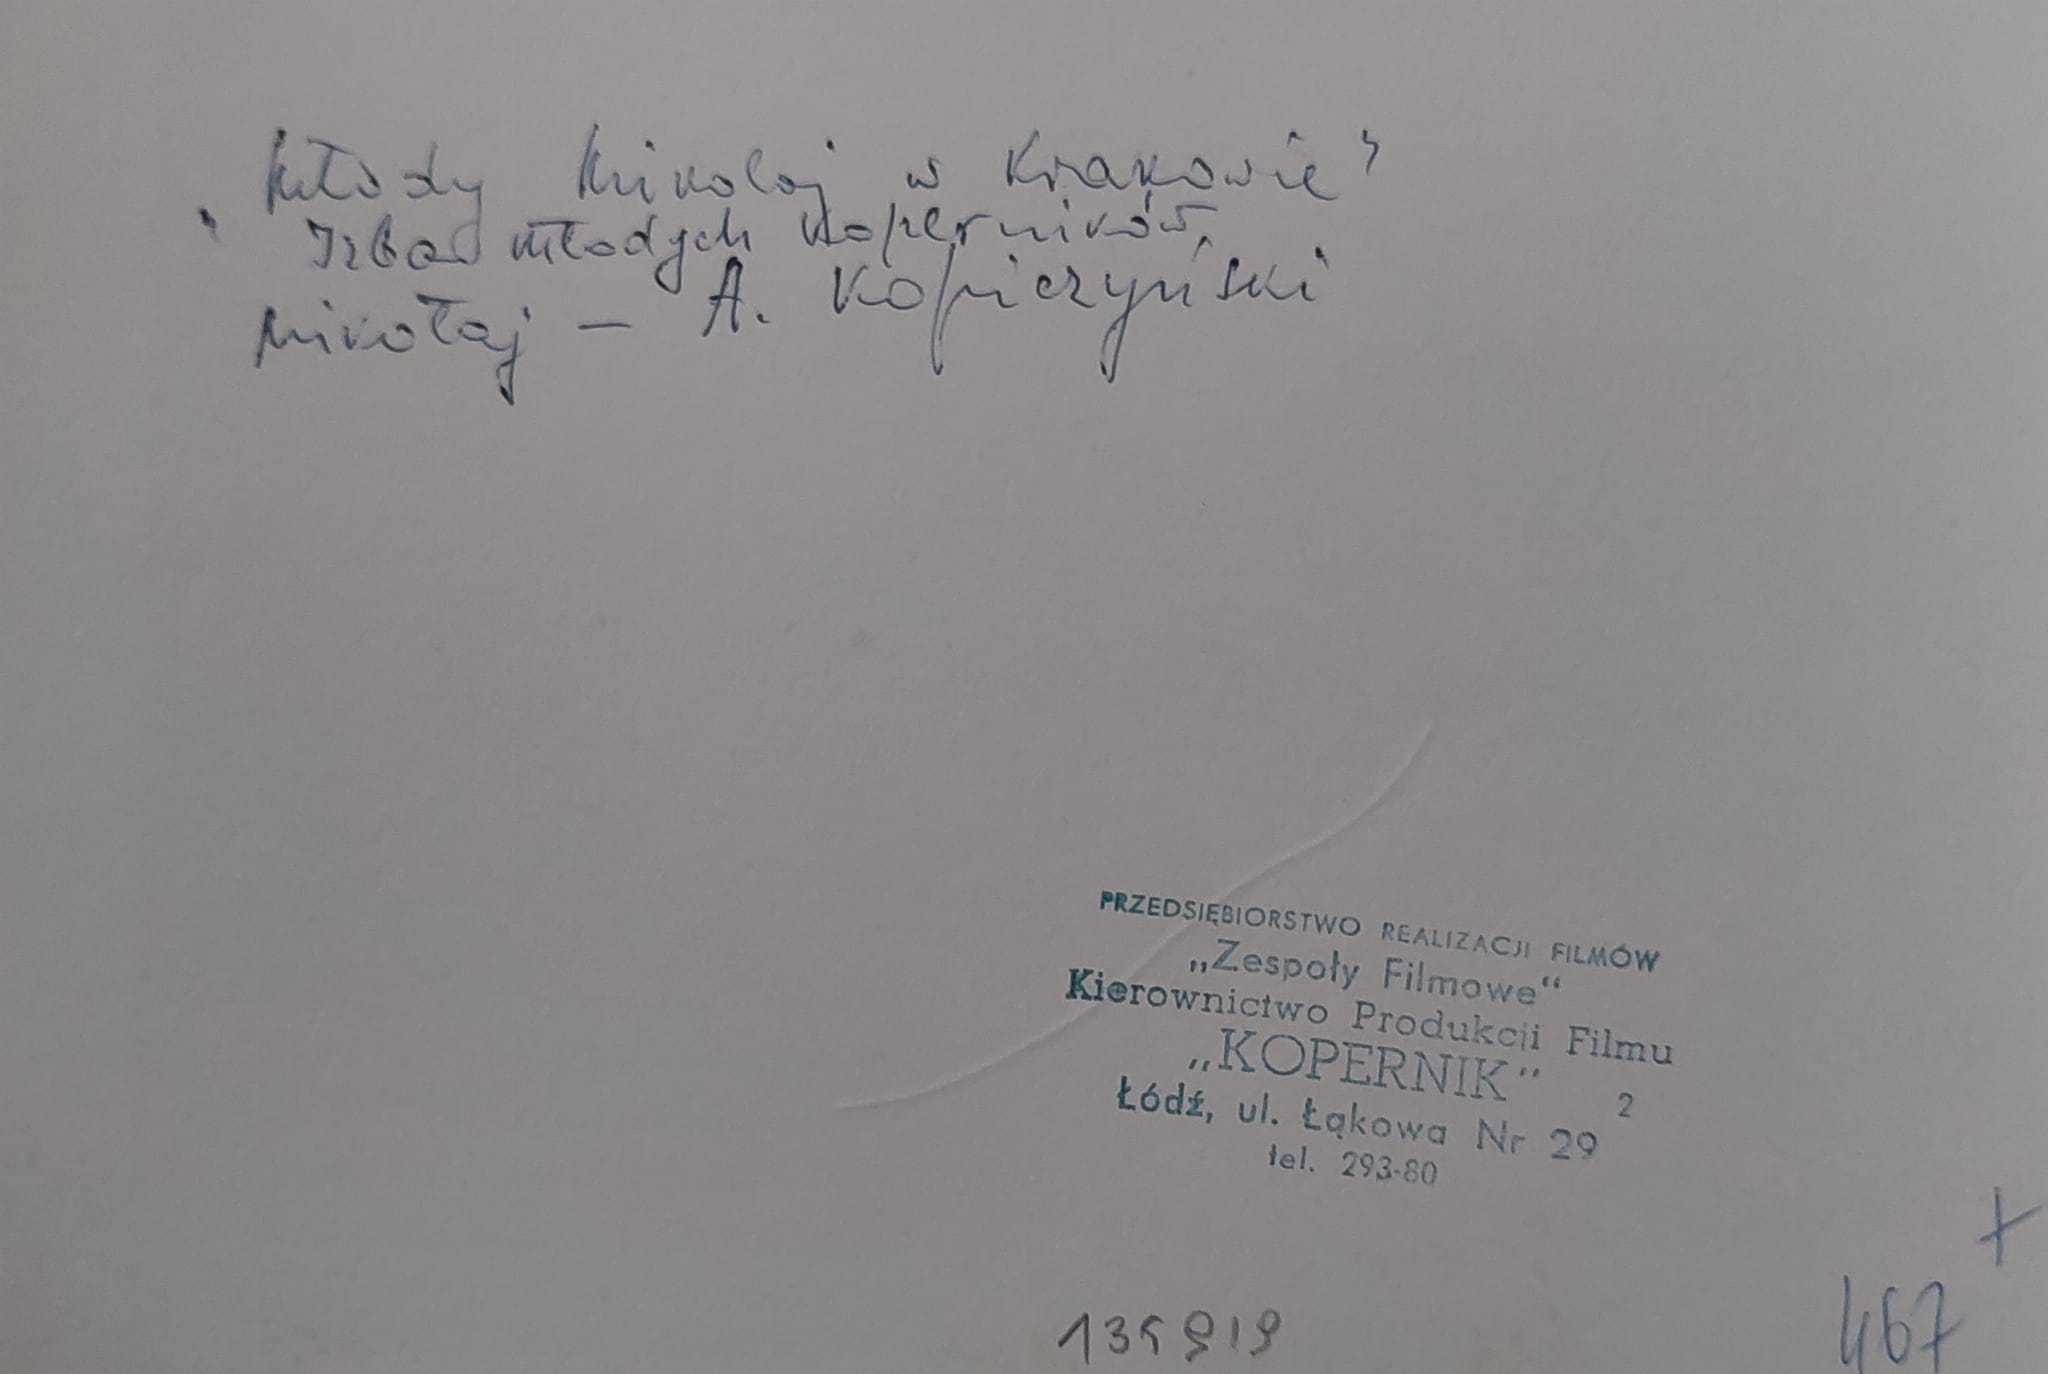 „Młody Mikolaj w Krakowie”
Izba młodych Koperników,
Mikołaj – A. Kopiczyński
PRZEDSIĘBIORSTWO REALIZACJI FILMÓW
„Zespoły Filmowe“
Kierownictwo Produkcji Filmu
„KOPERNIK“ 2
Łódź, ul. Łąkowa Nr 29
tel. 293-80
+
467